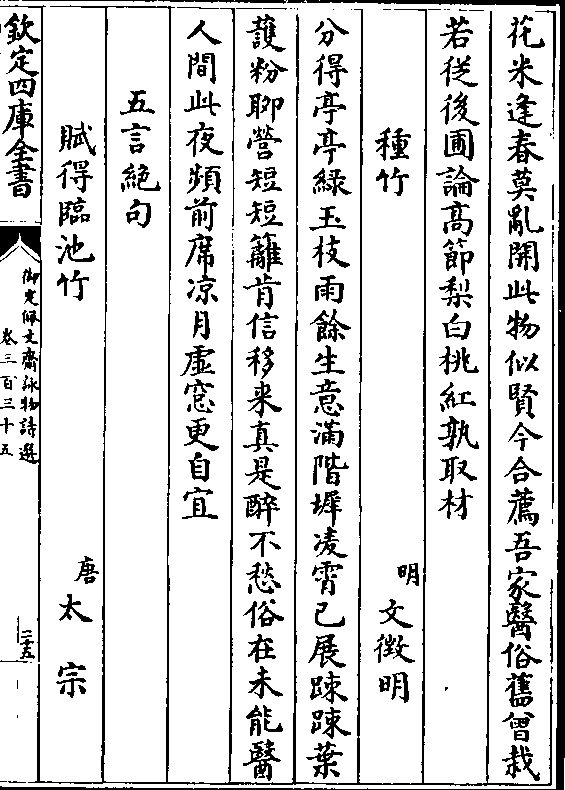 花米逢春莫亂開此物似賢今合薦吾家醫俗舊曾栽
若從後圃論高節梨白桃紅孰取材
種竹 明 文徵明
分得亭亭緑玉枝雨餘生意滿階墀凌霄已展踈踈葉
護粉聊營短短籬肯信移来真是醉不愁俗在未能醫
人間此夜頻前席凉月虛窓更自宜
五言絶句
賦得臨池竹 唐 太宗
欽定四庫全書
御定佩文齋詠物詩選
卷三百三十五
二十五